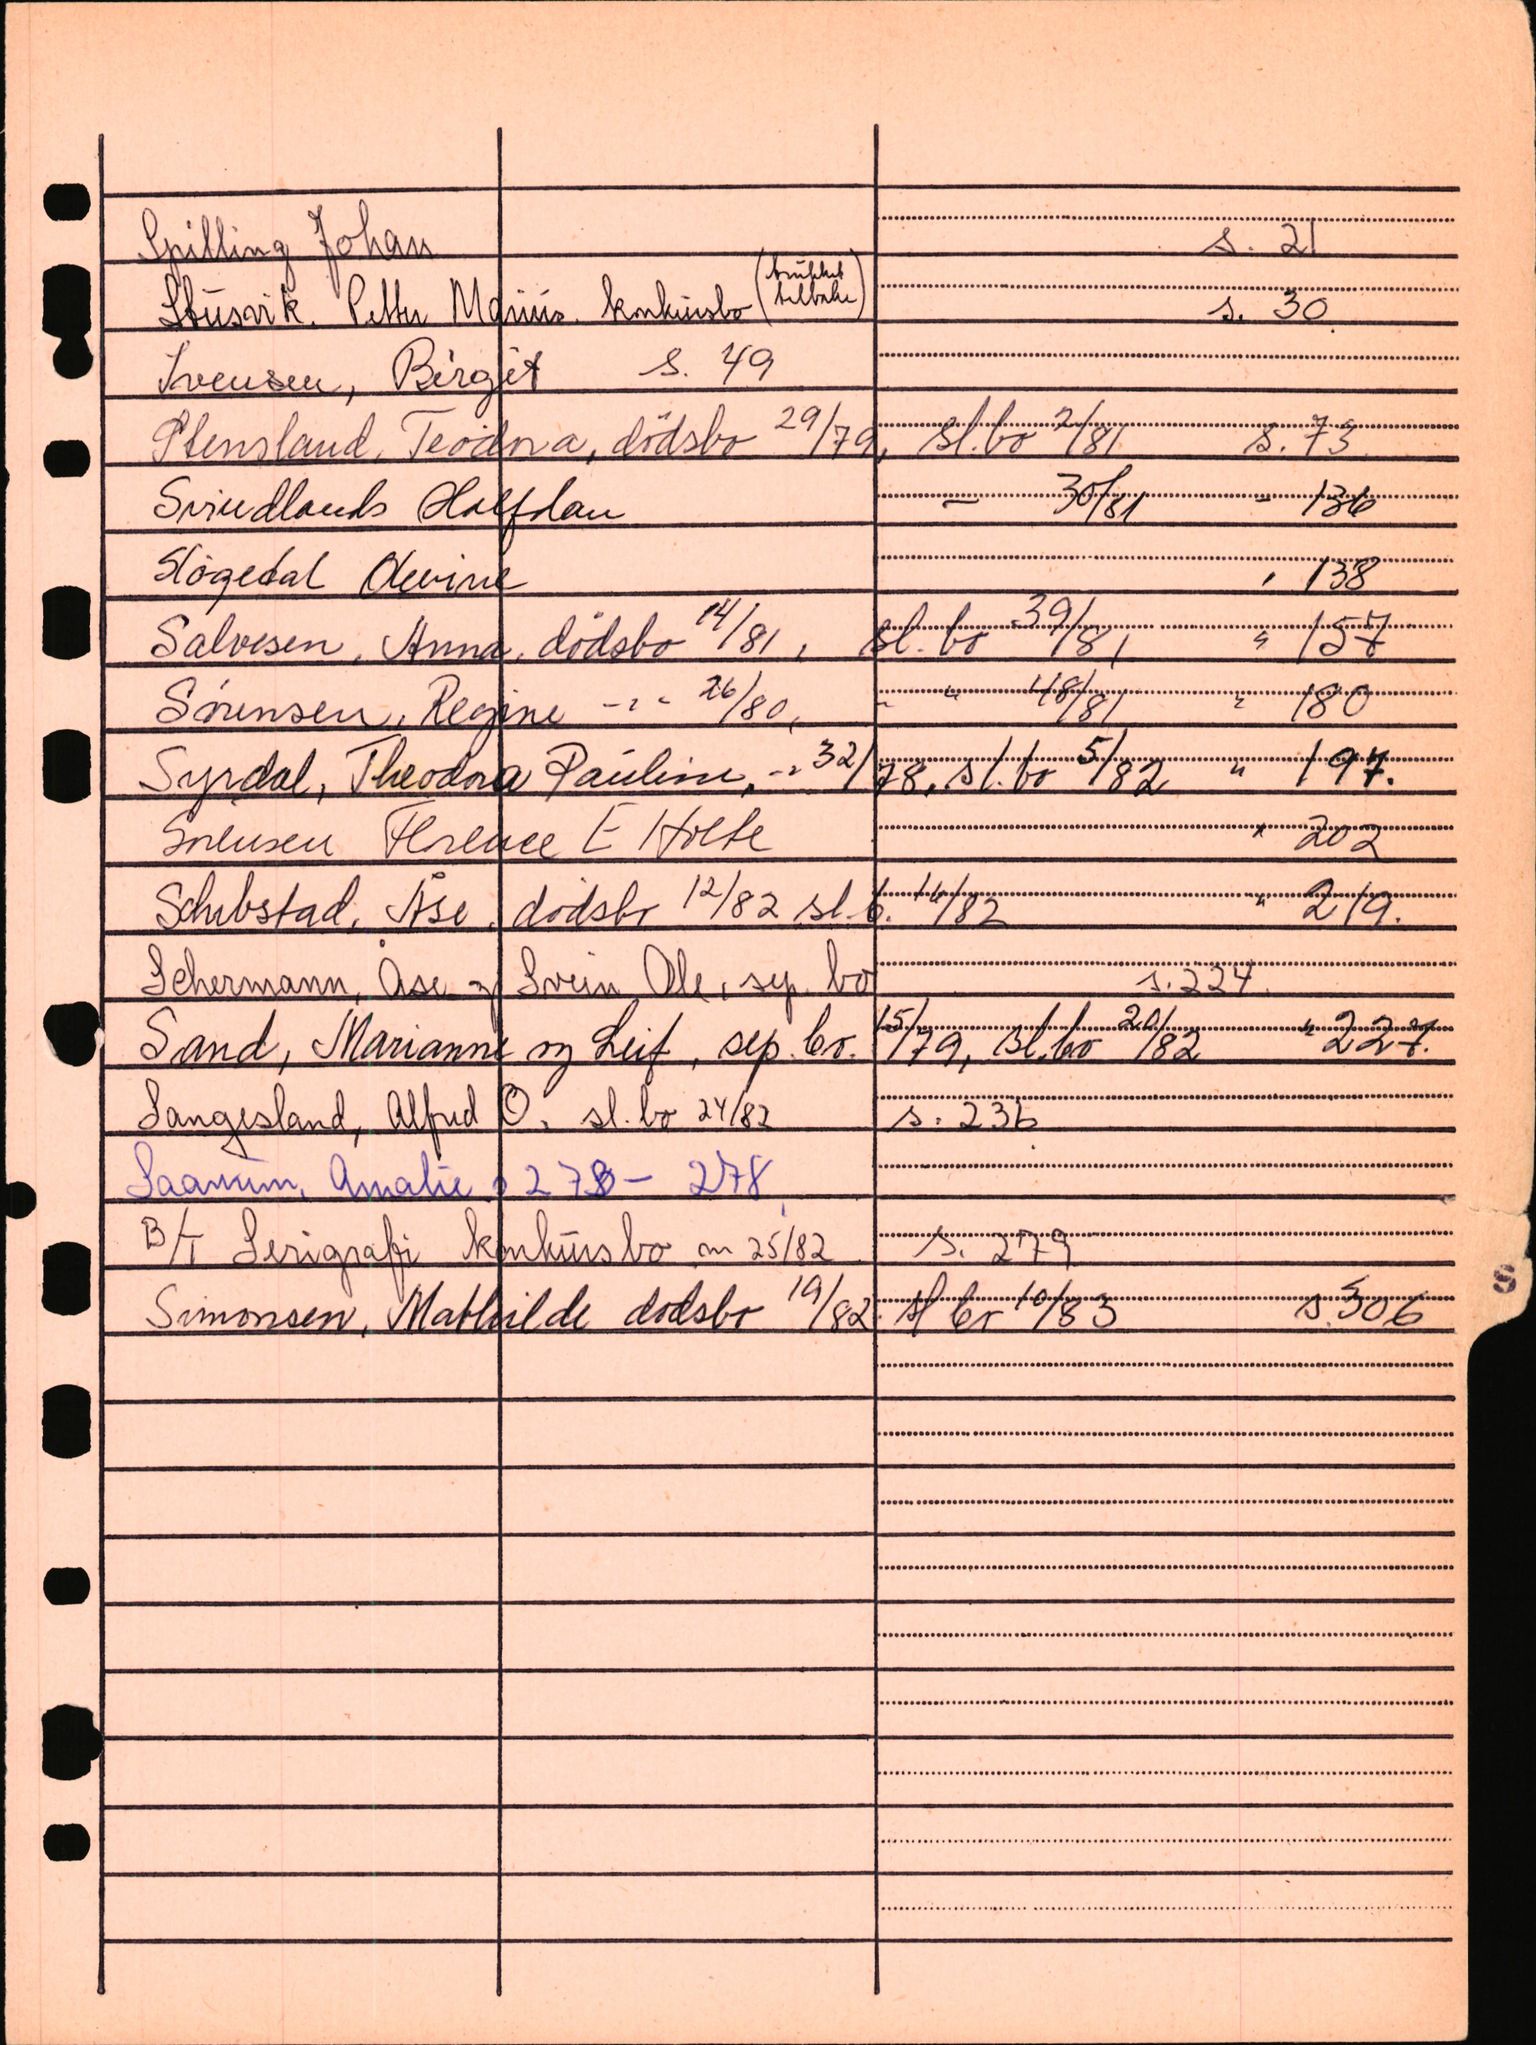 Spilling Johan s. 21
Stusvik. Petter Marius. konkursbo (trukket tilbake) s. 30
Svensen, Birgit s. 49
Stensland, Teodora, dödsbo 29/79, sl.bo 2/81 s. 73
Svindlands Halfdan — 30/81 - 136
Skögedal Olevine , 138
Salvesen, Anna, dödsbo 14/81, sl. bo 39/81, " 157
Sørensen, Regine - " - 26/80, " " 48/81 " 180
Syrdal, Theodora Pauline, - " 32/78, sl. bo 5/82 " 197.
Sørensen Florence E Holte " 202
Schibstad, Åse, dödsbo 12/82 sl.b. 14/82 " 219.
Schermann, Åse og Svein Ole, sep. bo s. 224.
Sand, Marianne og Leif, sep. bo. 15/79, sl.bo 20/82 " 227.
Sangesland, Alfred O. sl. bo 24/82 s. 236
Saanum, Amalie s 278 – 278
B/T Serigrafi konkursbo nr 25/82 s. 279
S
Simonsen, Mathilde dødsbo 19/82. sl bo 10/83 s. 306